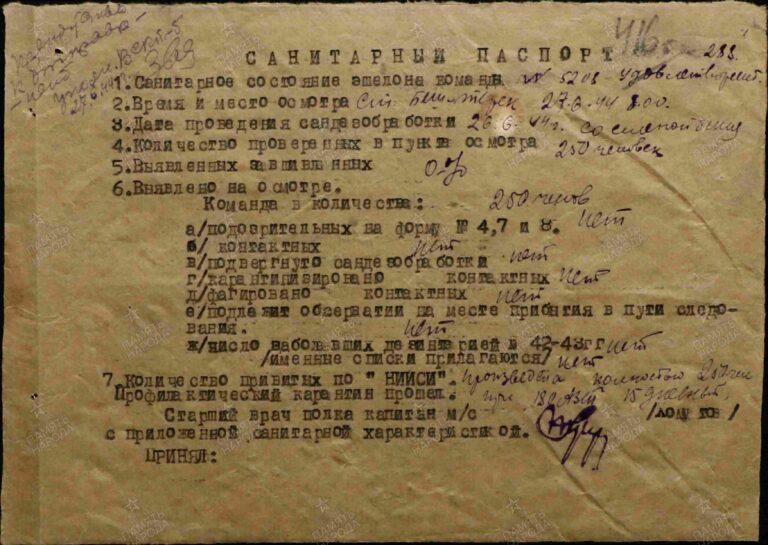 27.6.44
416 288
САНИТАРНЫЙ ПАСПОРТ
1.Санитарное состояние эшелона команды № 5208 удовлетворит.
2.Время и место осмотра 27.6.44 8.00.
3.Дата проведения сандезобработки 26.6.44г. со сменой белья
4.Количество проверенных в пункта осмотра 250 человек
5.Выявленных завшивлинных
6.Выявлено на осмотре.
Команда в количества: 250 челов
а/подозрительных на форму № 4,7 и 8. нет
б/ контактных нет
в/подвергнуто сандезобработки нет
г/карантинизировано контактных нет
д/фагировано контактных нет
е/подлежит обсерватии на месте прибытия в пути следо-
вания. нет
ж/число заболевших дезинтарией в 42-43гг нет
/именные списки прилагаются/ нет
7.Количество привитых по " НИИСИ". полностью
Профилактический карантин прошел. при 15 дневный,
Старший врач полка капитан м/с /Ломутов/
с приложенной санитарной характеристикой.
ПРИНЯЛ: